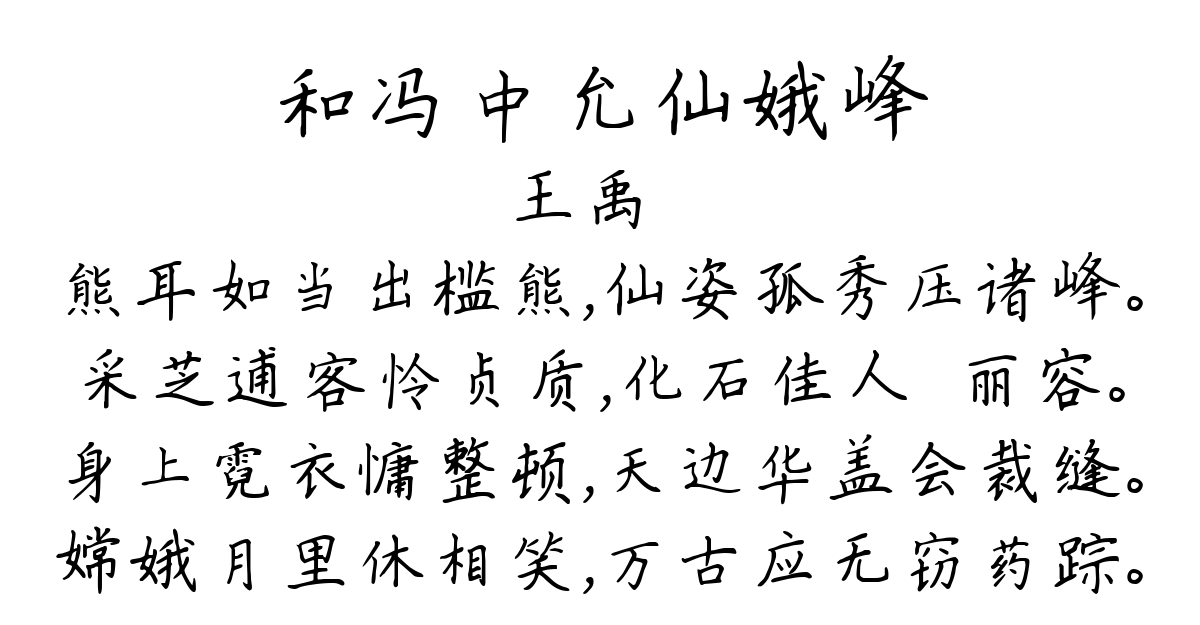 和冯中允仙娥峰
王禹
熊耳如当出槛熊,仙姿孤秀压诸峰。
采芝逋客怜贞质,化石佳人 丽容。
身上霓衣慵整顿,天边华盖会裁缝。
嫦娥月里休相笑,万古应无窃药踪。